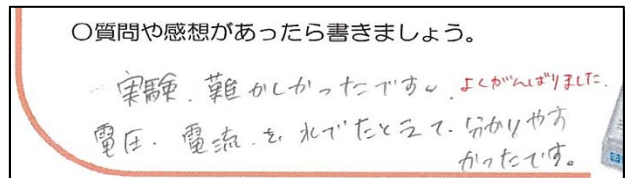 〇質問や感想があったら書きましょう。
実験、難かしかったです。
よくがんばりました。
電圧、電流、を、水でたとえて、分かりやす
かったです。